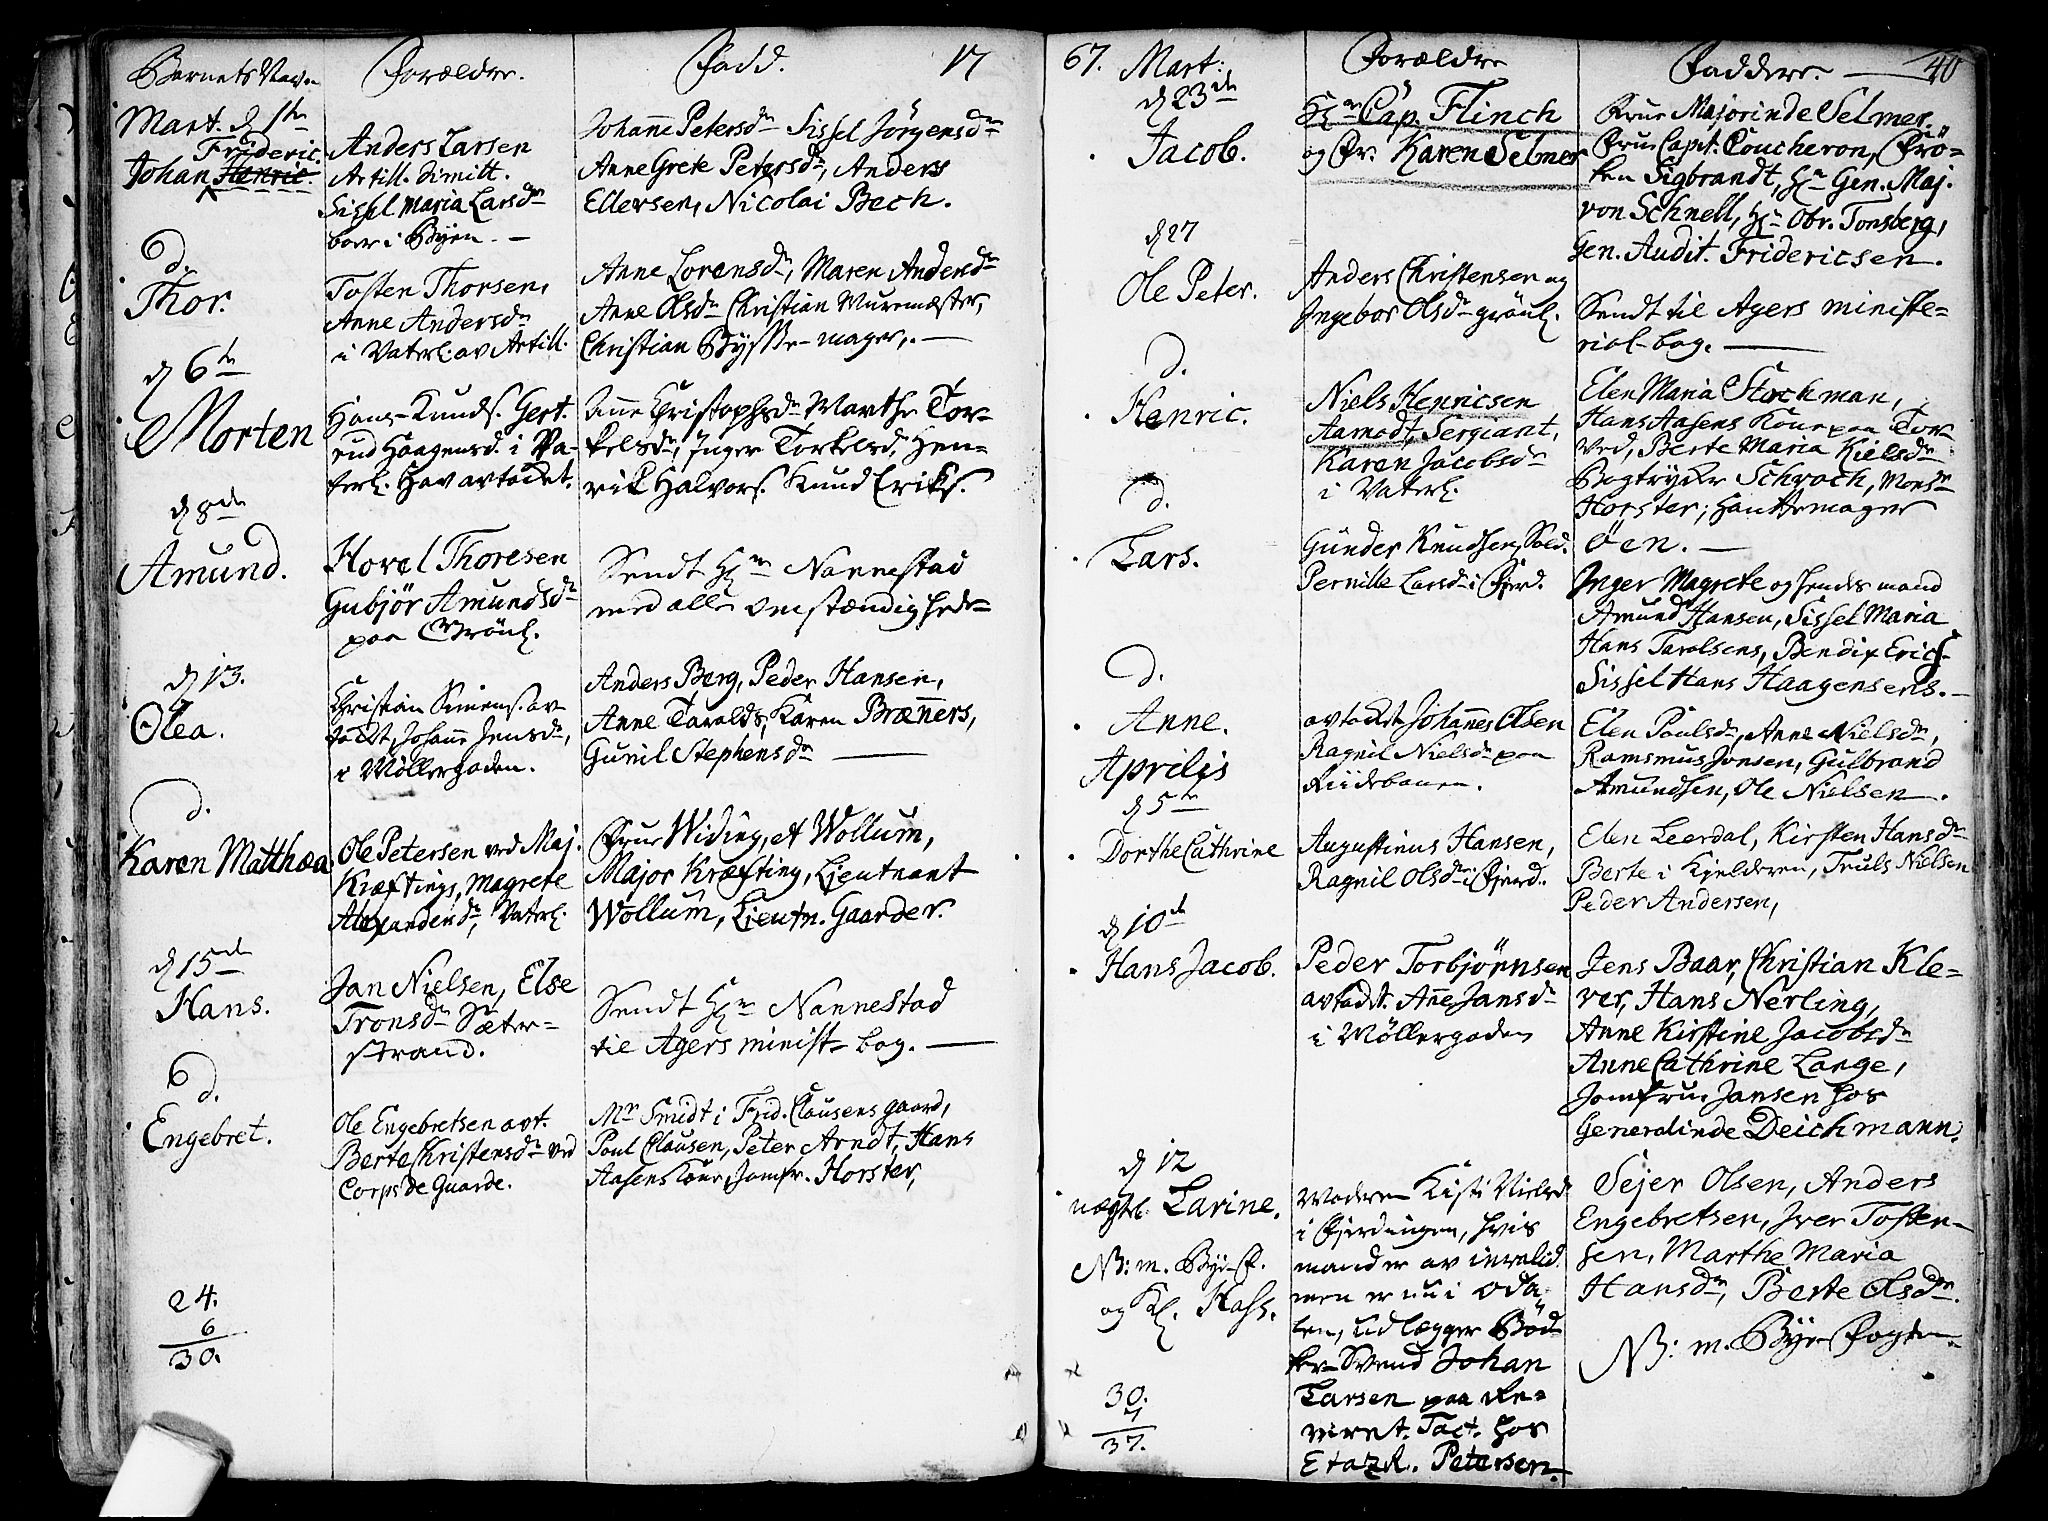 Barnets Navn
Forældre.
Fadd.
17
Mart. d 1te
Frideric.
Johan Henric.
Anders Larsen
Artill. dimitt.
Sissel Maria Larsdr
boer i Byen. —
Johanne Petersdr Sissel Jörgensdr
Anne Grete Petersdr, Anders
Ellersen, Nicolai Bech.
d.
Thor.
Tosten Thorsen,
Anne Andersdr
i Vaterl. av Artill.
Anne Lorensdr, Maren Andersdr
Anne Olsdr Christian Muremæster,
Christian Bysse-mager, —
d 6te
Morten
Hans Knuds. Gert-
rud Haagensd. i Va-
terl. Hav avtacket.
Anne Christophsdr Marthe Tor-
kelsdr, Inger Torkelsd, Hen-
rik Halvors. Knud Eriks.
d 8de
Amund.
Hovel Thoresen
Gubjör Amundsdr
paa Grönl.
Sendt Hr Nannestad
med alle omstændighede-
d 13.
Olea.
Christian Simens. av-
tackt, Johanne Jensdr,
i Möllergaden.
Anders Berg, Peder Hansen,
Anne Taralds, Karen Bræners,
Gunil Stephensdr —
d.
Karen Matthæa
Ole Petersen ved Maj.
Kræftings, Magrete
Alexandersdr, Vaterl.
Frue Widing, et Wollum,
Major Kræfting, Lieutnant
Wollum, Lieutn. Gaarder.
d 15de
Hans.
Jan Nielsen, Else
Tronsdr Sæter-
strand.
Sendt Hr Nannestad
til Agers minist- bog. —
d.
Engebret.
Ole Engebretsen avt.
Berte Christensdr ved
Corps de Guarde.
Mr Smidt i Frid. Clausens gaard,
Poul Clausen, Peter Arndt, Hans
Aasens Kone, Jomfr. Horster,
24.
6
30.
67.
Mart:
Forældre
Faddere. — 40
d 23de
Jacob.
Hr Cap. Flinch
og Fr. Karen Selmer
Frue Majorinde Selmer.
Frue Capit. Coucheron, Frö-
ken Sigbrandt, Hr Gen. Maj.
von Schnell, Hr Obr. Tonsberg,
Gen. Audit. Fridericsen.
d 27
Ole Peter.
Anders Christensen og
Ingebor Olsdr grönl.
Sendt til Agers ministe-
rial-bog. —
d.
Henric.
Niels Henricsen
Aamodt, Sergiant,
Karen Jacobsdr
i Vaterl.
Elen Maria Stockman,
Hans Aasens Kone paa Tor-
ved, Berte Maria Kielsdr
Bogtrycker Schwach, Monsr
Horster; Hattemager
Öen. —
d.
Lars.
Gunder Knudsen, Sold.
Pernille Larsdr i Fjerd.
Inger Magrete og hendes mand
Amund Hansen, Sissel Maria
Hans Tarolsens, Bendix Erics-
Sissel Hans Haagensens. —
d.
Anne.
avtackt Johannes Olsen
Ragnil Nielsdr paa
Riidebanen.
Elen Poulsdr, Anne Nielsdr,
Ramsmus Jonsen, Gulbrand
Amundsen, Ole Nielsen.
Aprilis
d 5te
Dorthe Cathrine
Augustinus Hansen,
Ragnil Olsdr i Fjerd.
Elen Leerdal, Kirsten Hansdr
Berte i Kjelderen, Truls Nielsen
Peder Andersen,
d 10de
Hans Jacob.
Peder Torbjörnsen
avtackt. Anne Jansdr
i Möllergaden
Jens Baar, Christian Kle-
ver, Hans Nerling,
Anne Kirstine Jacobsdr
Anne Cathrine Lange,
Jomfrue Jansen hos
Generalinde Deichmann.
d 12
uægte Larine.
NB: m. Bye-F.
og Kl. Hass.
Moderen Kisti Nielsdr
i Fjerdingen, hvis
mand er av invalid
men er nu i Oda-
len, udlægger Böd-
ker-Svend Johan
Larsen paa Re-
viret. Tact. hos
EtazR. Petersen.
Sejer Olsen, Anders
Engebretsen, Iver Tosten-
sen, Marthe Maria
Hansdr, Berte Olsdr.
NB: m. Bye-Fogden
30.
7
37.